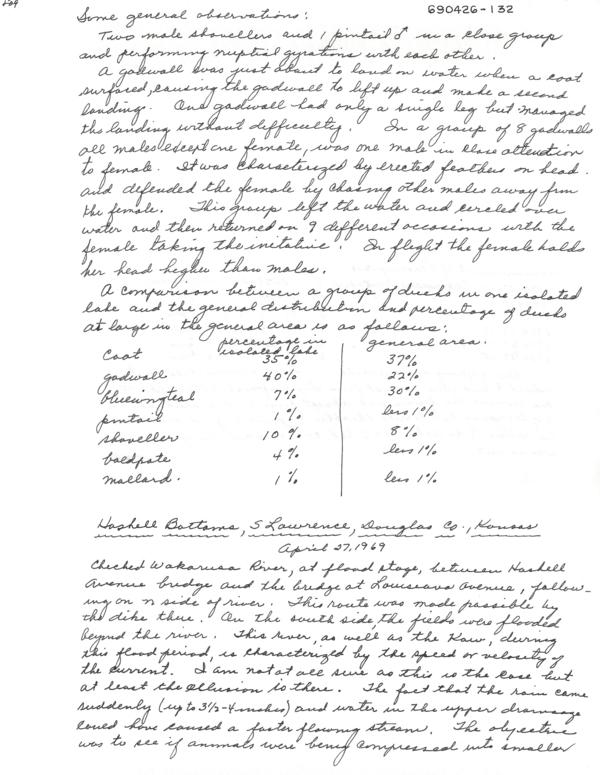 690426-132
Some general observations:
Two male shovellers and 1 pintail ♂ in a close group
and performing nuptial gyrations with each other.
A gadwall was just about to land on water when a coot
surfaced, causing the gadwall to lift up and make a second
landing. One gadwall had only a single leg but managed
the landing without difficulty. In a group of 8 gadwalls
all males except one female, was one male in close attention
to female. It was characterized by erected feathers on head.
and defended the female by chasing other males away from
the female. This group left the water and circled over
water and then returned on 9 different occasions with the
female taking the initative. In flight the female holds
her head higher than males.
A comparison between a group of ducks in one isolated
lake and the general distribution and percentage of ducks
at large in the general area is as follows:
percentage in isolated lake general area.
Coot 35% 37%
gadwall 40% 22%
bluewingteal 7% 30%
pintail 1% less 1%
shoveller 10% 8%
baldpate 4% less 1%
mallard. 1% less 1%
Haskell Bottoms, S Lawrence, Douglas Co., Kansas
April 27, 1969
Checked Wakarusa River, at flood stage, between Haskell
Avenue bridge and the bridge at Louisiana Avenue, follow-
ing on n side of river. This route was made possible by
the dike there. On the south side, the fields were flooded
beyond the river. This river, as well as the Kaw, during
this flood period, is characterized by the speed or velosity of
the current. I am not at all sure as this is the case but
at least the illusion is there. The fact that the rain came
suddenly (up to 3½-4 inches) and water in the upper drainage
could have caused a faster flowing stream. The objective
was to see if animals were being compressed into smaller